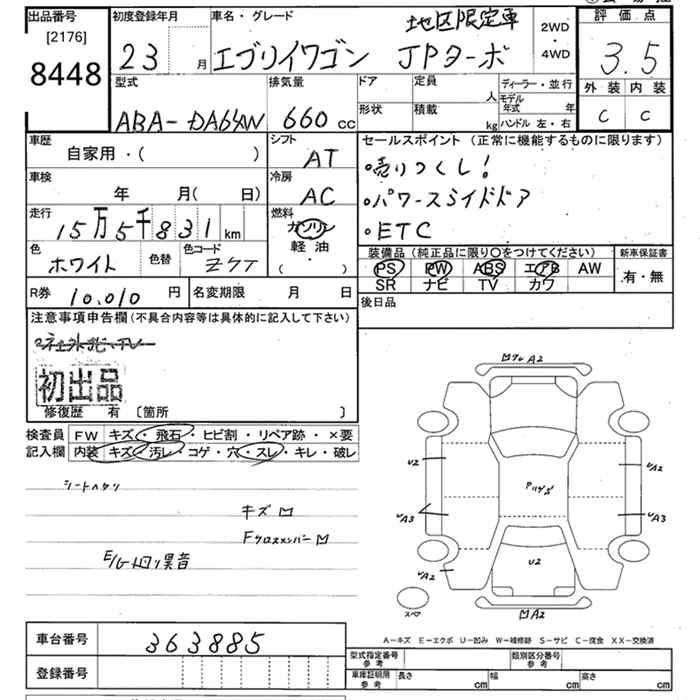 出品番号
[2176]
8448
初度登録年月
23 月
車名・グレード
地区限定車
エブリイワゴン JPターボ
2WD
・
4WD
評価点
3.5
外装 内装
C C
型式
ABA-DA64W
排気量
660 cc
ドア
形状
定員
人
積載
kg
ディーラー・並行
モデル年式 年
ハンドル 左・右
車歴
自家用・( )
シフト
AT
車検
年 月( 日)
冷房
AC
走行
15万5千831km
燃料
ガソリン
軽油
( )
色
ホワイト
色替
色コード
Z7T
R券 10,010 円
名変期限 月 日
セールスポイント (正常に機能するものに限ります)
・売りつくし!
・パワースライドドア
・ETC
装備品 (純正品に限り○をつけてください)
PS PW ABS エアB AW
SR ナビ TV カワ
新車保証書
有・無
後日品
注意事項申告欄 (不具合内容等は具体的に記入して下さい)
初出品
修復歴 有 〔箇所 〕
検査員
記入欄
FW キズ・飛石・ヒビ割・リペア跡・×要
内装 キズ・汚レ・コゲ・穴・スレ・キレ・破レ
シートヘタリ
キズ M
Fクロスメンバー M
E/G 異音
A2
U2
UA2
UA3
UA3
U2
UA2
スペア
MA2
A-キズ E-エクボ U-凹み W-補修跡 S-サビ C-腐食 XX-交換済
車台番号
363885
登録番号
型式指定番号
参考
類別区分番号
参考
車庫証明用
参考
長さ cm
幅 cm
高さ cm